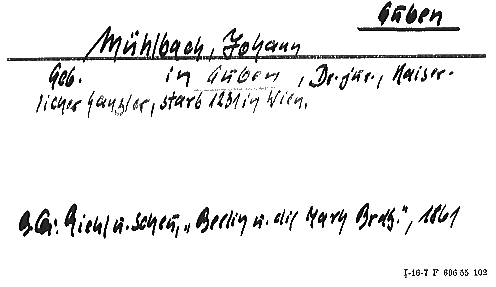 Guben
Mühlbach, Johann
Geb. in Guben, Dr. jur., Kaiser-
licher Kanzler, starb 1231 in Wien.
Riehl u. Scheu, „Berlin u. die Mark Brdg.", 1861
I-16-7 F 606 55 102